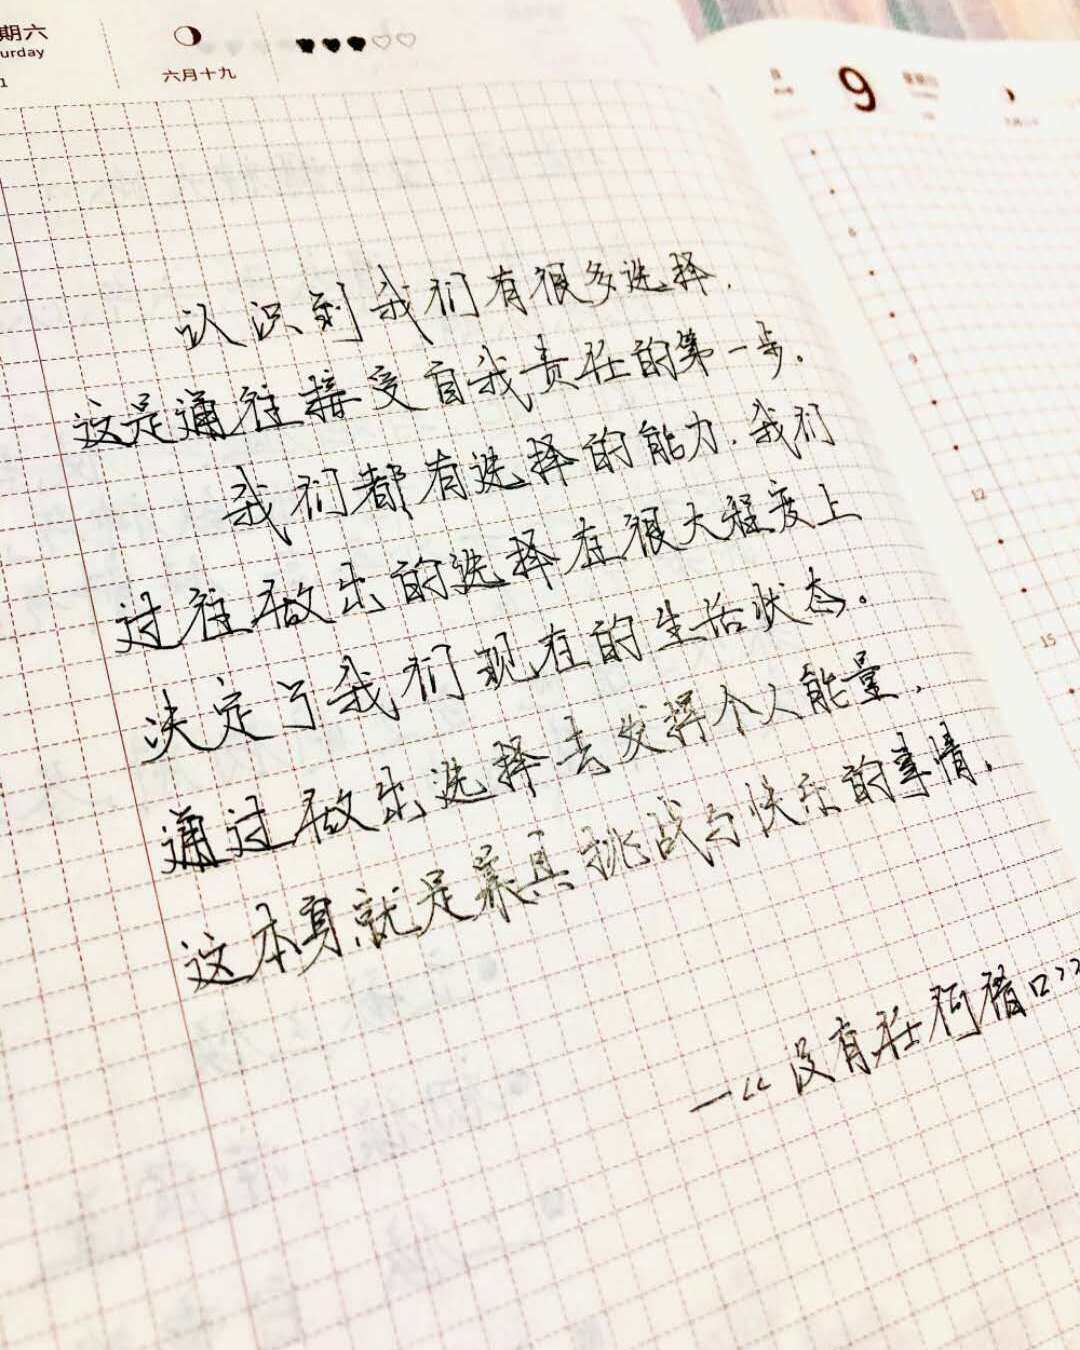 期六
urday
1
六月十九
9
6
9
12
15
认识到我们有很多选择,
这是通往接受自我责任的第一步.
我们都有选择的能力.我们
过往做出的选择在很大程度上
决定了我们现在的生活状态。
通过做出选择去发挥个人能量,
这本身就是兼具挑战与快乐的事情.
—《没有任何借口》